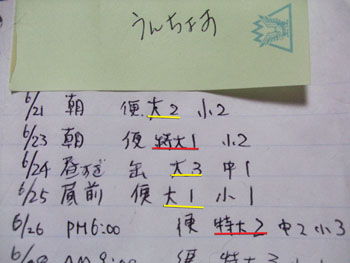 うんちょお
6/21 朝 便 大2 小2
6/23 朝 便 特大1 小2
6/24 昼すぎ 缶 大3 中1
6/25 昼前 便 大1 小1
6/26 PM6:00 便 特大2 中2 小3
便 特大3